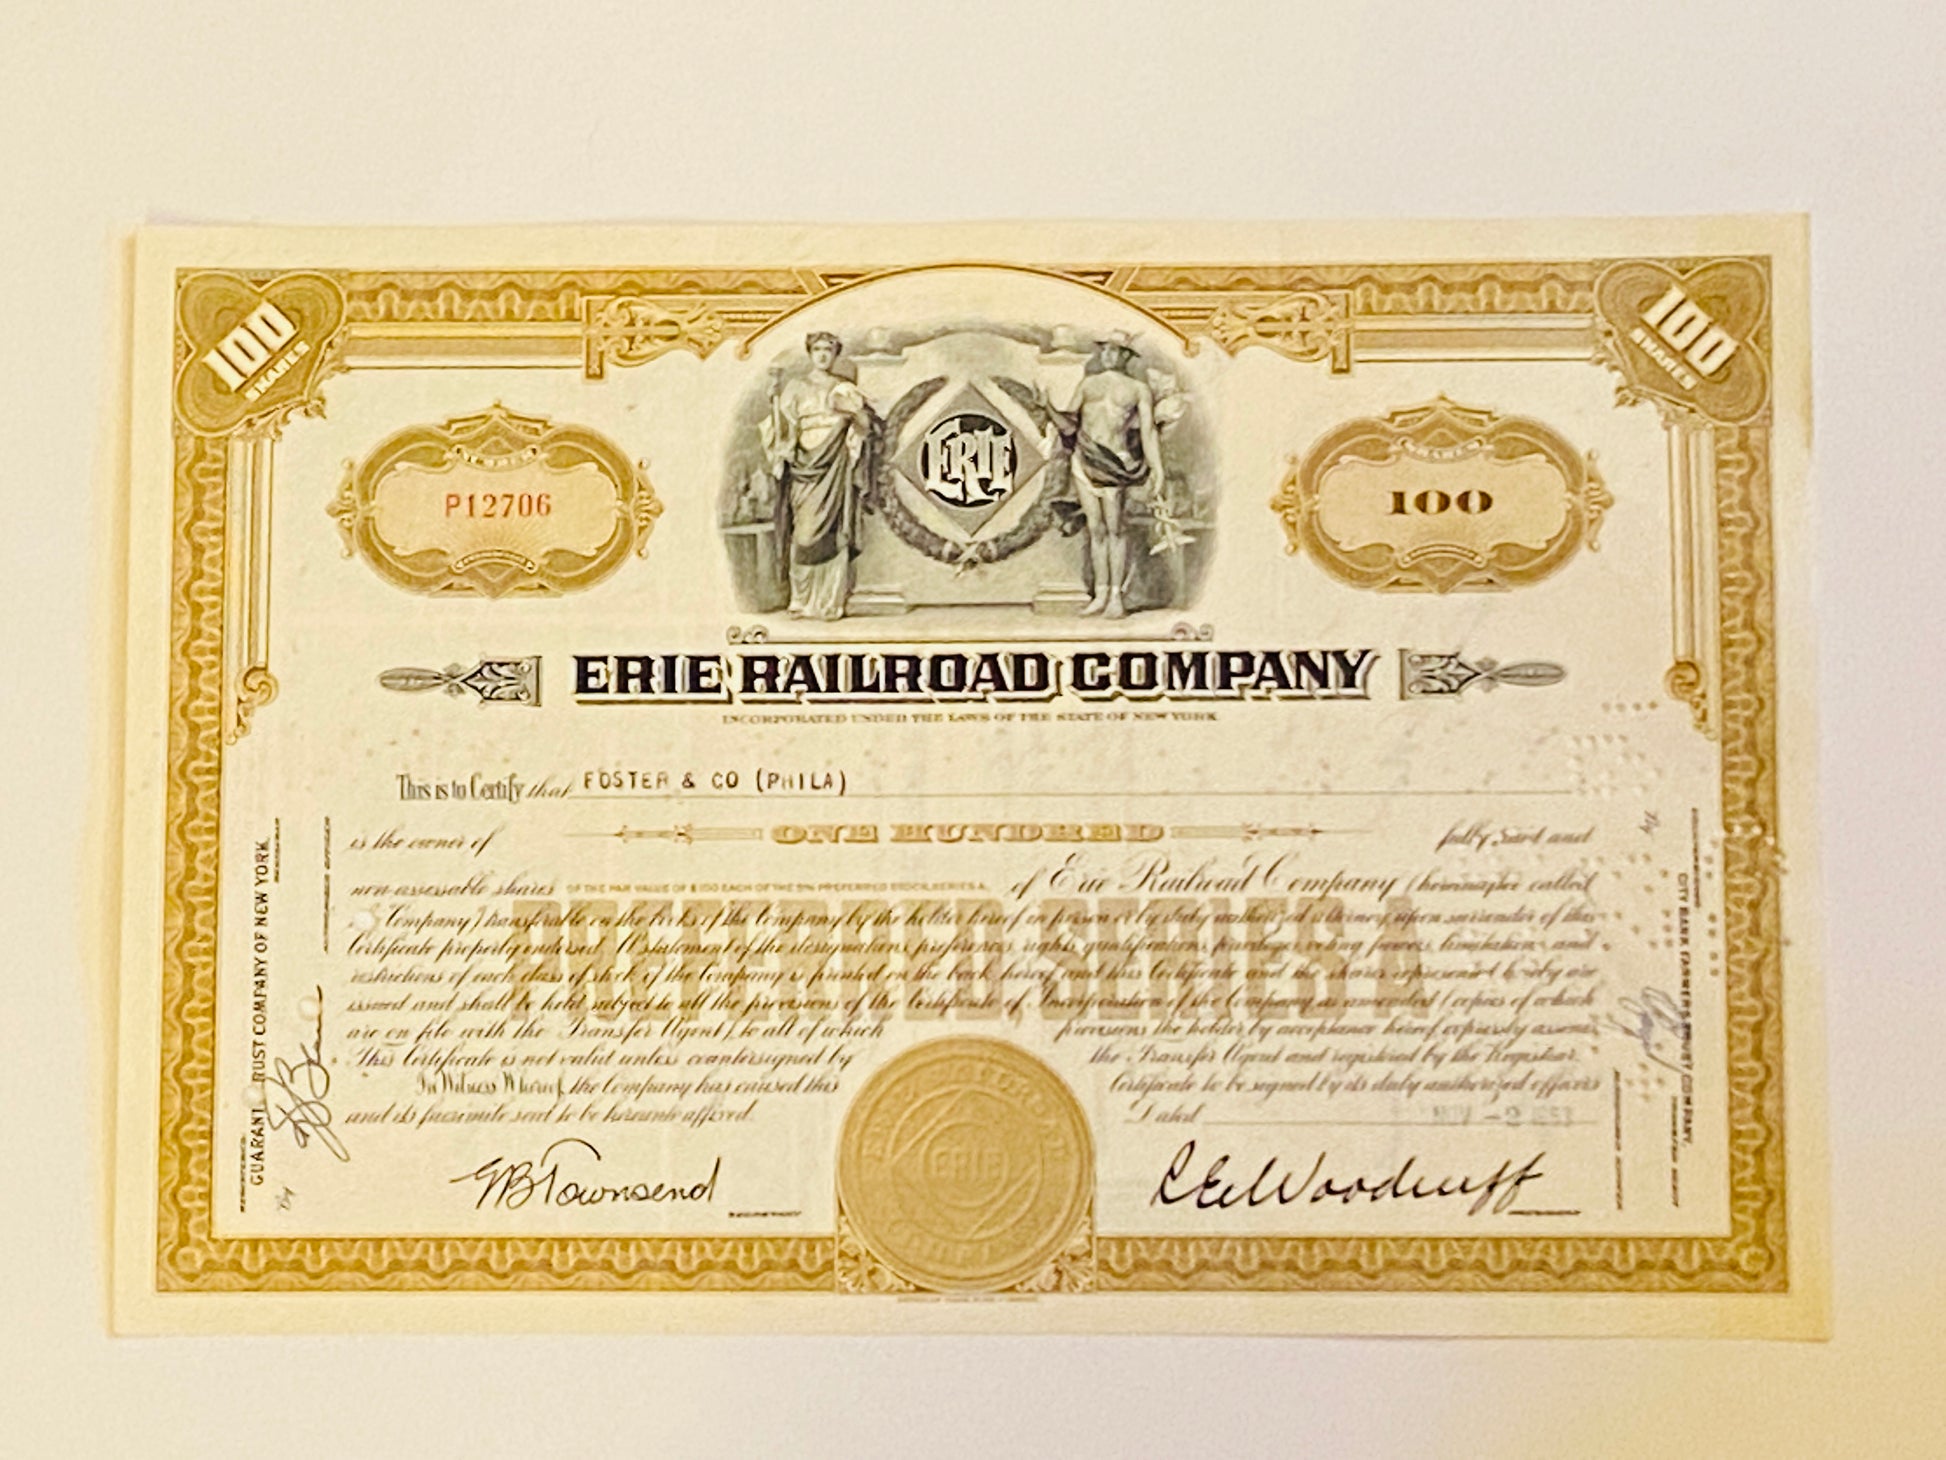 100 SHARES
100 SHARES
ERIE
NUMBER
P12706
SHARES
100
ERIE RAILROAD COMPANY
INCORPORATED UNDER THE LAWS OF THE STATE OF NEW YORK
This is to Certify that FOSTER & CO (PHILA)
is the owner of ONE HUNDRED fully paid and
non-assessable shares OF THE PAR VALUE OF $100 EACH OF THE 5% PREFERRED STOCK, SERIES A, of Erie Railroad Company (hereinafter called
"Company") transferable on the books of the Company by the holder hereof in person or by duly authorized attorney, upon surrender of this
Certificate properly endorsed. A statement of the designations, preferences, rights, qualifications, privileges, voting powers, limitations and
restrictions of each class of stock of the Company is printed on the back hereof and this Certificate and the shares represented hereby are
issued and shall be held subject to all the provisions of the Certificate of Incorporation of the Company as amended (copies of which
are on file with the Transfer Agent), to all of which provisions the holder by acceptance hereof expressly assents.
This Certificate is not valid unless countersigned by the Transfer Agent and registered by the Registrar.
In Witness Whereof, the Company has caused this Certificate to be signed by its duly authorized officers
and its facsimile seal to be hereunto affixed.
Dated
PREFERRED, SERIES A
GB Townsend
SECRETARY
R E Woodruff
ERIE
GUARANTY TRUST COMPANY OF NEW YORK,
By
CITY BANK FARMERS TRUST COMPANY,
By